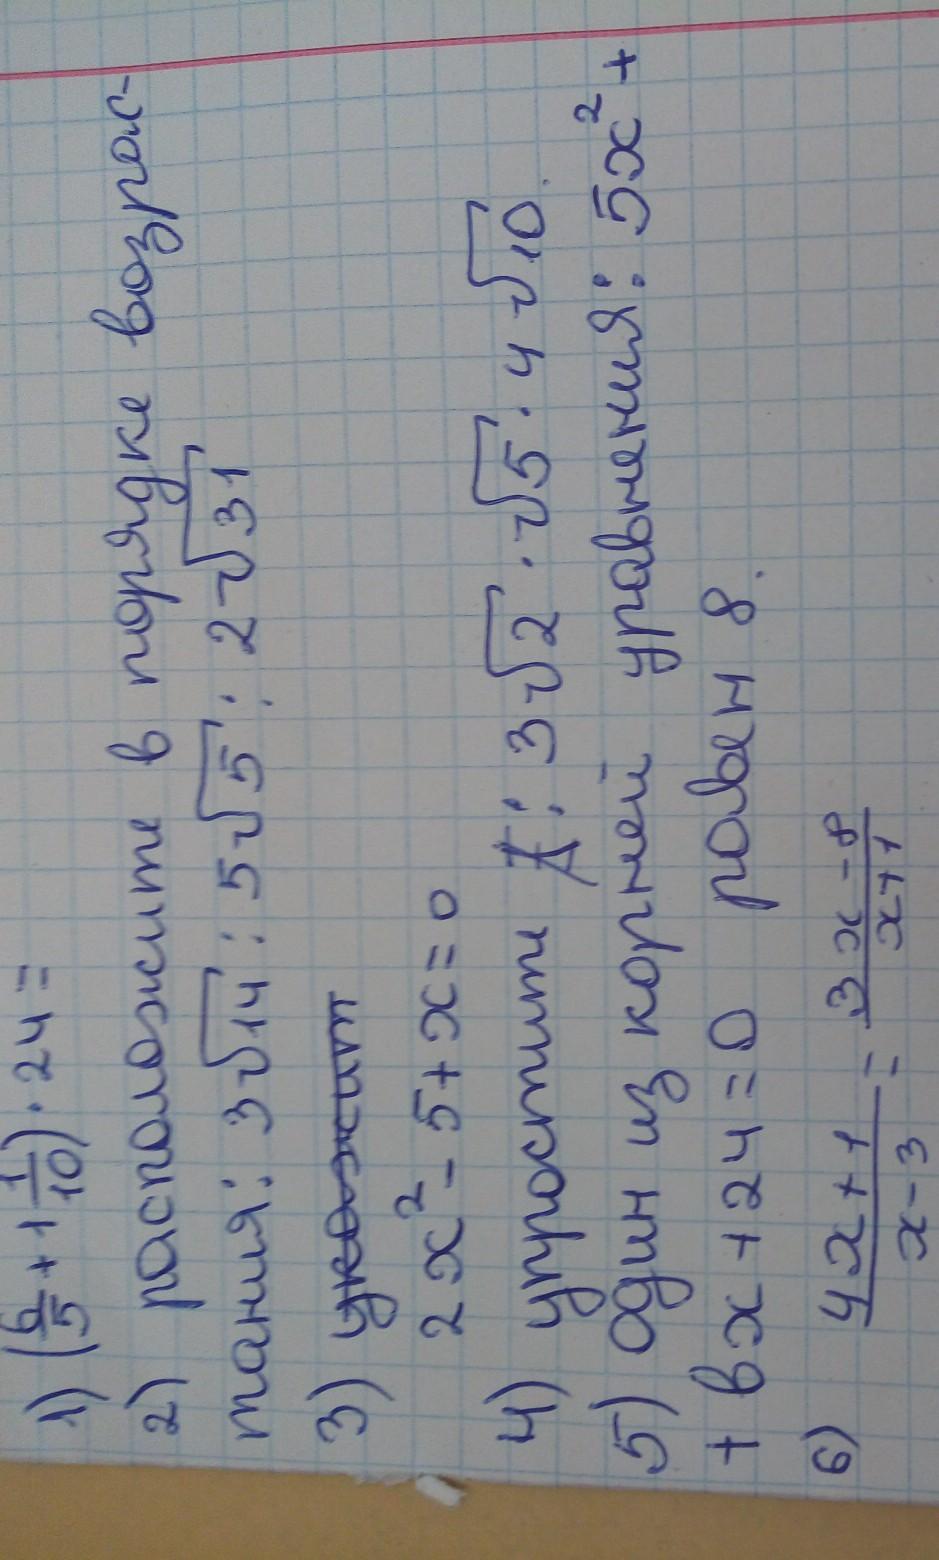 1) (6/5 + 1 1/10) · 24 =
2) расположите в порядке возрас-
тания: 3√14 ; 5√5 ; 2√31
3)
2x² - 5 + x = 0
4) упростите : 3√2 · √5 · 4√10.
5) один из корней уравнения: 5x² +
+ вx + 24 = 0 равен 8.
6) (4x+1)/(x-3) = (3x-8)/(x+1)